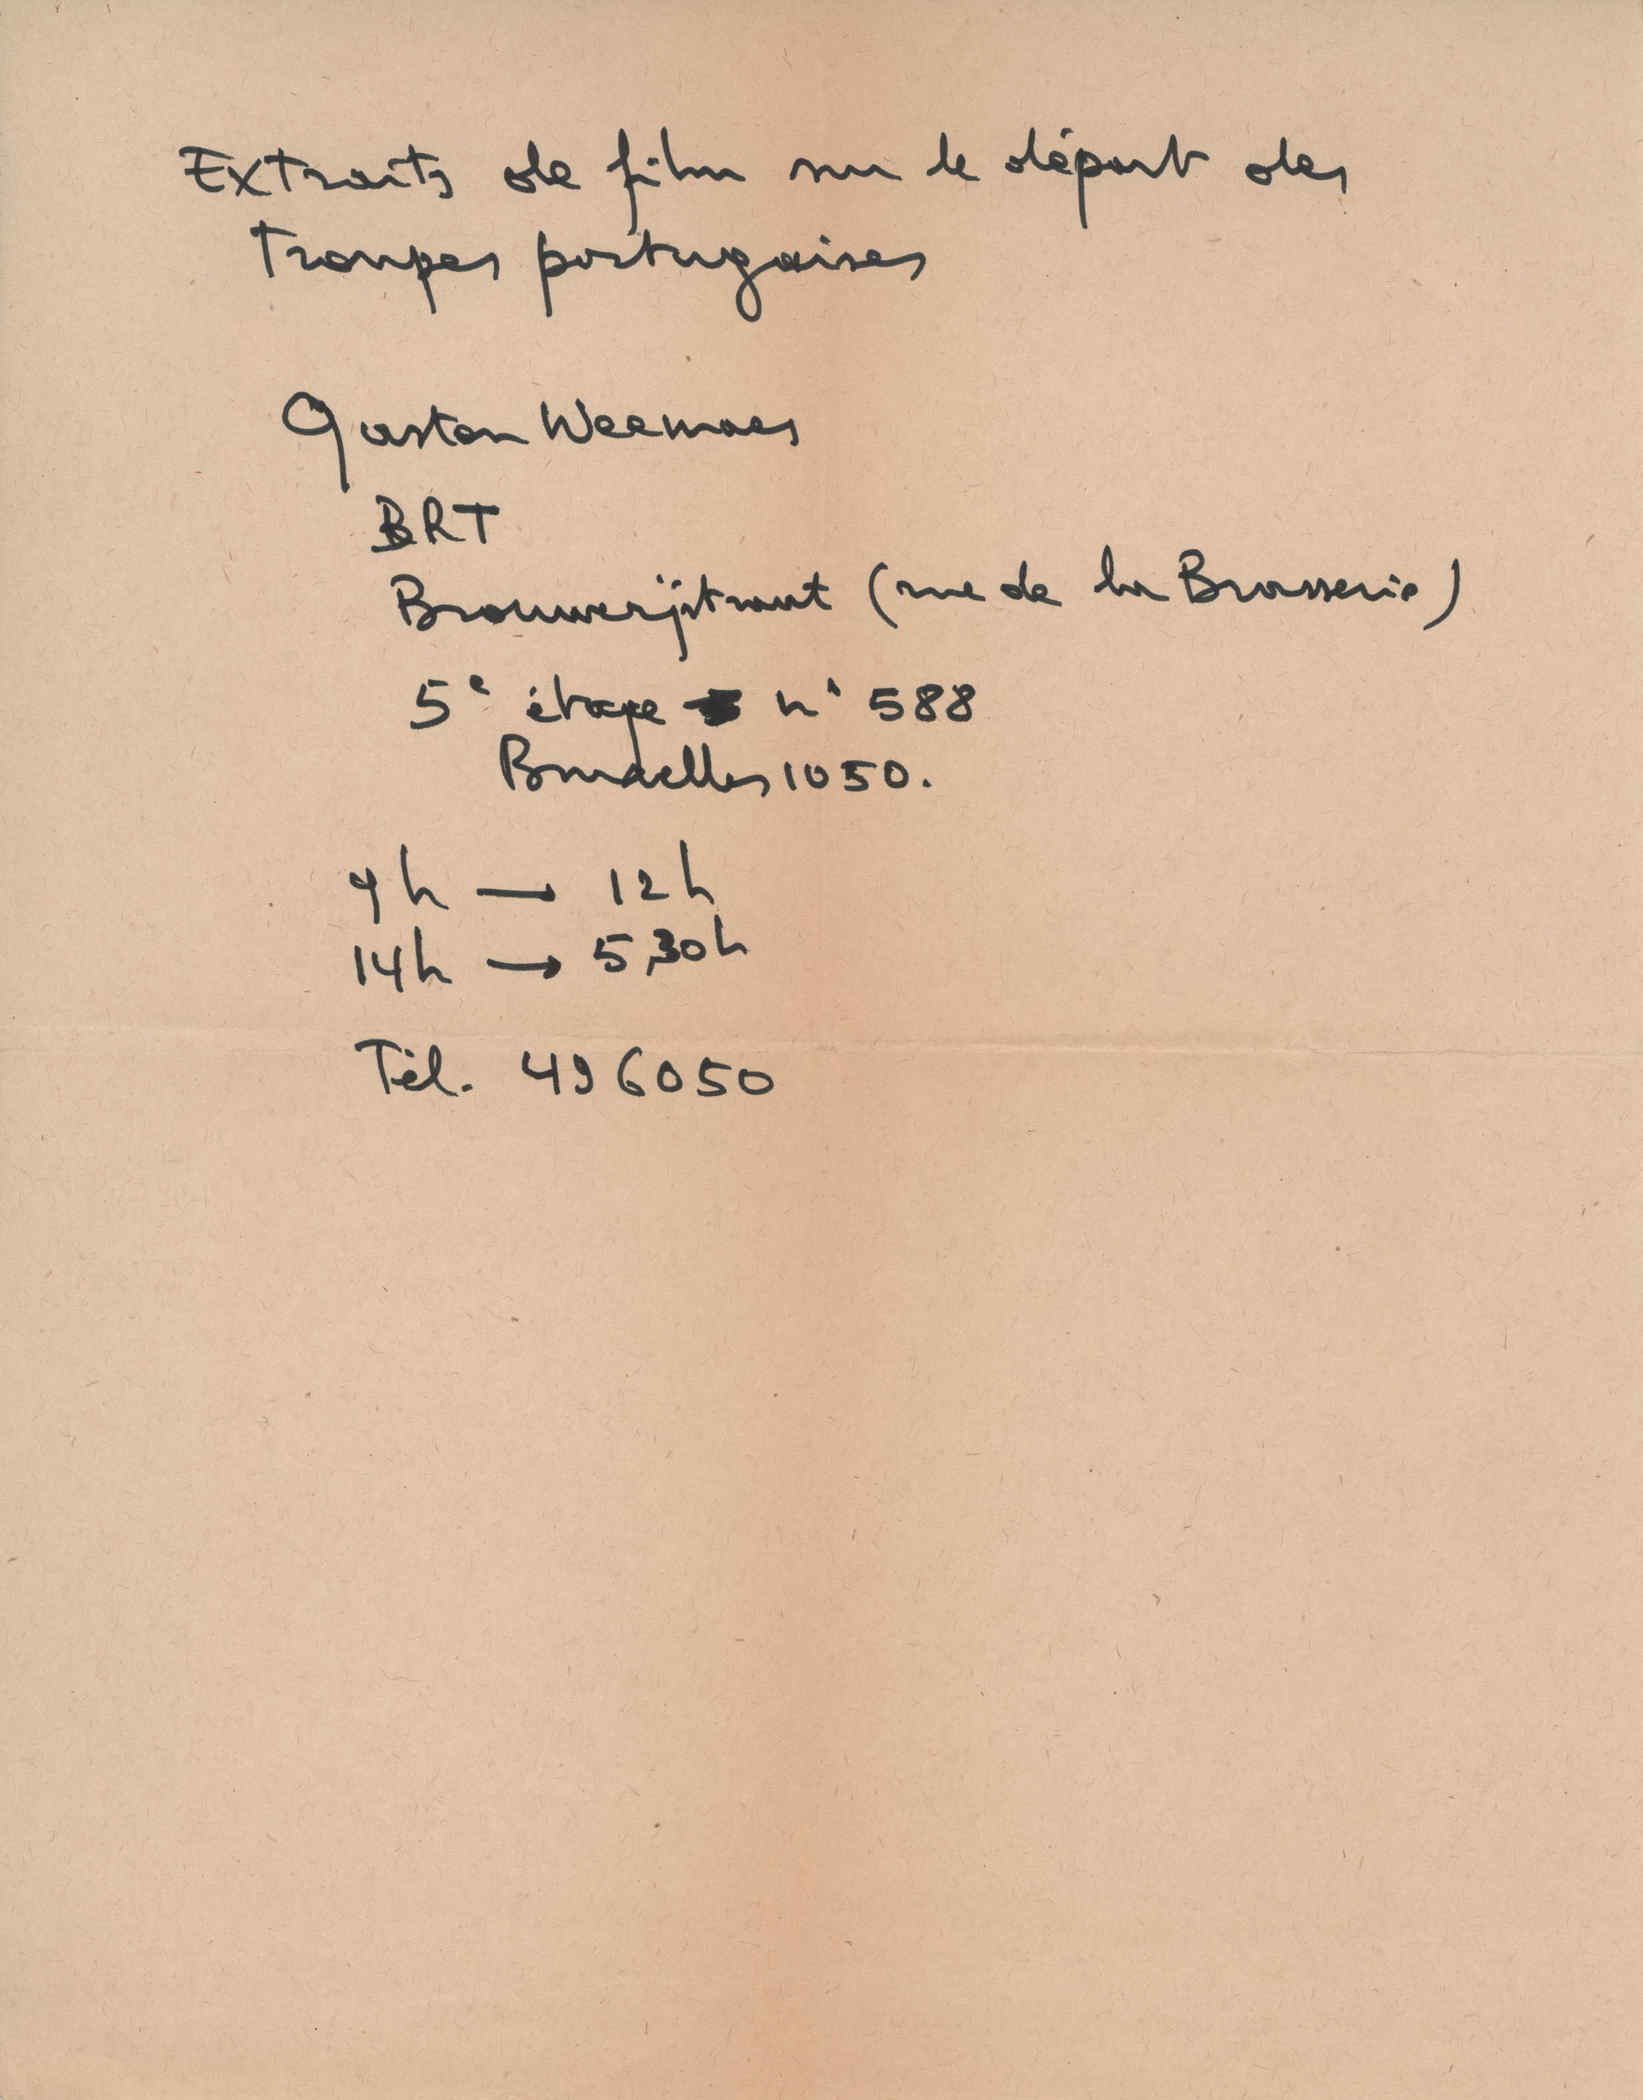 Extraits de film sur le départ des
Troupes portugaises
Gaston Weemaes
BRT
Brouwerijstraat (rue de la Brasserie)
5e étage n° 588
Bruxelles 1050.
9h → 12h
14h → 5,30h
Tél. 496050